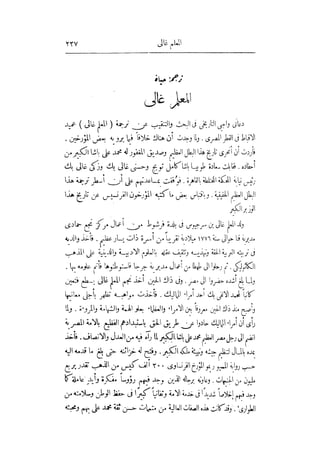 المعلم غالى
٢٣٧
ترجمة حياة
المعلم غالى
دعانى واجبى التاريخى فى البحث والتنقيب عن ترجمة ( المعلم غالى ) عميد
الاقباط فى القطر المصرى . ولما وجدت أن هناك خلافا فيما يرويه بعض المؤرخين .
فأردت أن أتحرى تاريخ هذا البطل العظيم وصديق المغفور له محمد على باشا الكبير من
أحفاده . فقابلت سعادة طوبيا باشا كامل تويج وحسنى غالى بك وزكى غالى بك
رئيس نيابة المحكمة المختلطة بالقاهرة . فوفقت بمساعدتهم على أن أسطر ترجمة هذا
البطل العظيم الحقيقية . وباقتباس بعض ما كتبه المؤرخون الفرنسيس عن تاريخ هذا
الوزير الكبير
ولد المعلم غالى بن سرجيوس فى بلدة فرشوط من أعمال مركز نجع حمادى
مديرية قنا حوالى سنة ١٧٧٦ ميلادية تقريبا من أسرة ذات يسار عظيم . فأخذ والديه
فى تربيته التربية الحقة وتهذيبه وتثقيف عقله بالعلوم الادبية والدينية على المذهب
الكاثوليكى . ثم رحلوا الى طهطا من أعمال مديرية جرجا فاستوطنوها فأتم علومه بها .
ولما بلغ أشده حضروا الى مصر . وفى ذاك الحين أخذ نجم المعلم غالى يسطع فتعين
كاتبا لمحمد الالفى بك أحد أمراء المماليك . فأخذت مواهبه تظهر بأجلى معانيها
وأصبح منذ ذاك الحين معروفا بين الامراء والعظماء بعلو الهمة والشهامة والمروءة . ولما
رأى أن أمراء المماليك حادوا عن طريق الحق باستبدادهم الفظيع بالامة المصرية
انضم الى رجل مصر العظيم محمد على باشا الكبير لما رآه فيه من العدل والانصاف . فأخذ
يمده بالمال لتنظيم جيشه وتهيئة ملكه الكبير . وفتح له خزائنه حتى بلغ ما قدمه اليه
حسب رواية المؤرخ الفرنساوى ٣٠٠ ألف كيس من الذهب تقدر بربع
مليون من الجنيهات . وعاونه برجاله الذين وجد فيهم رؤوسا مفكرة وأيدٍ عاملة كما
وجد فيهم إخلاصا شديدا فى خدمة الامة وتفانيا كبيرا فى حفظ الوطن وسلامته من
الطوارئ . وقد كانت هذه الصفات العالية من متممات حسن ثقة محمد على بهم ومحبته